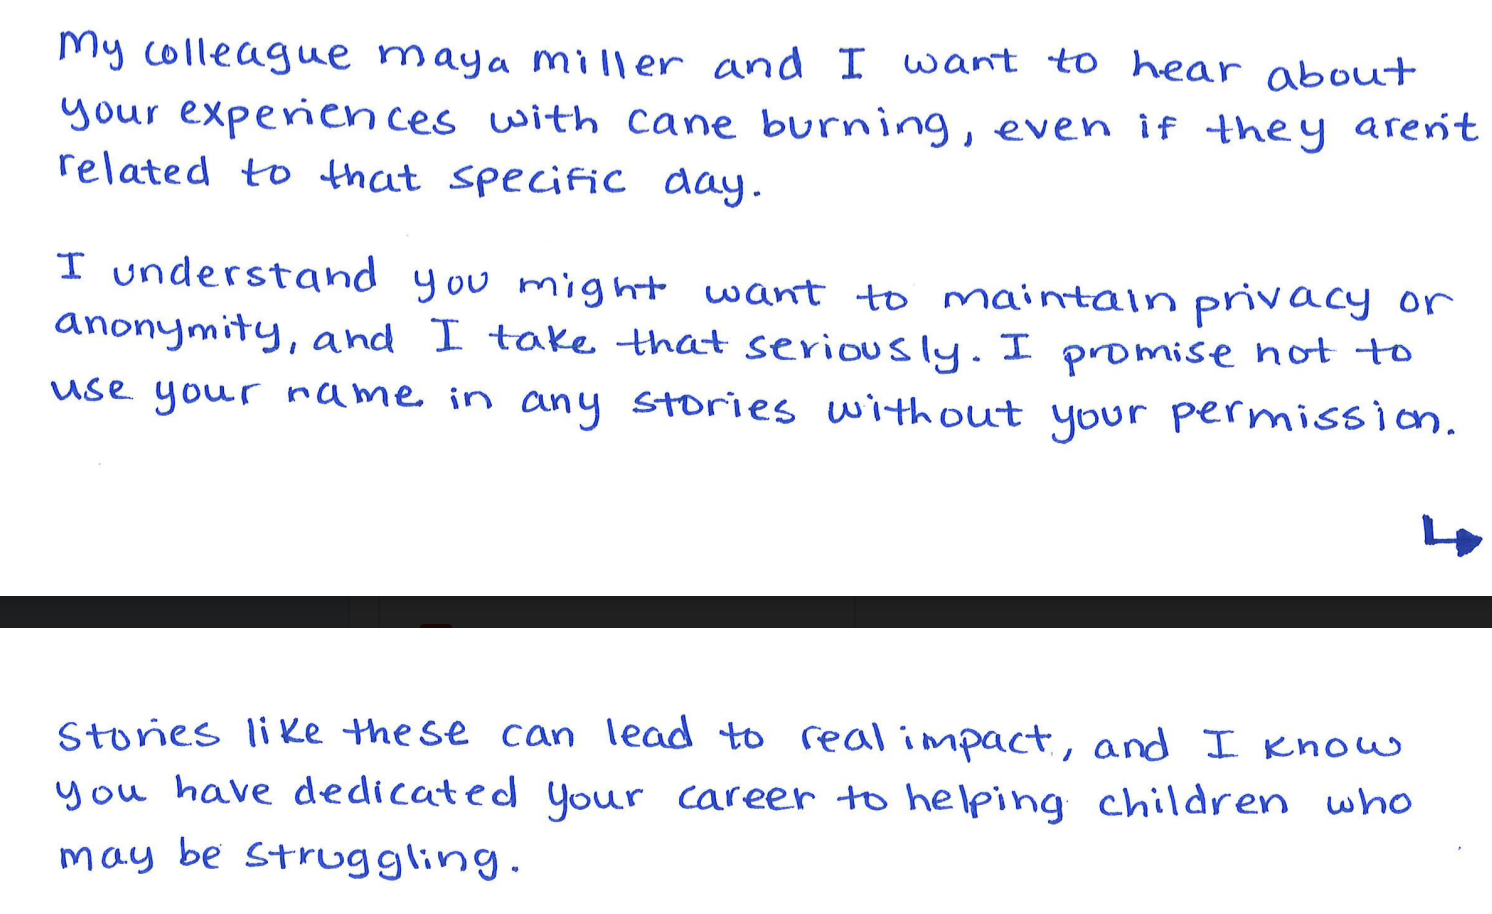 My colleague maya miller and I want to hear about
your experiences with cane burning, even if they aren't
related to that specific day.
I understand you might want to maintain privacy or
anonymity, and I take that seriously. I promise not to
use your name in any stories without your permission.
Stories like these can lead to real impact, and I know
you have dedicated your career to helping children who
may be struggling.